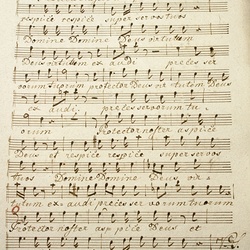 respice respice super servos tuos
Domine Domine Deus virtutum
Deus virtutum ex audi preces ser
vorum tuorum protector Deus virtutum Deus
ex audi. preces servorum tu
orum Protector noster aspice
Deus et respice respice super servos
tuos Domine Domine Deus vir
tutum ex audi preces servorum tuorum
Protector noster aspice Deus et